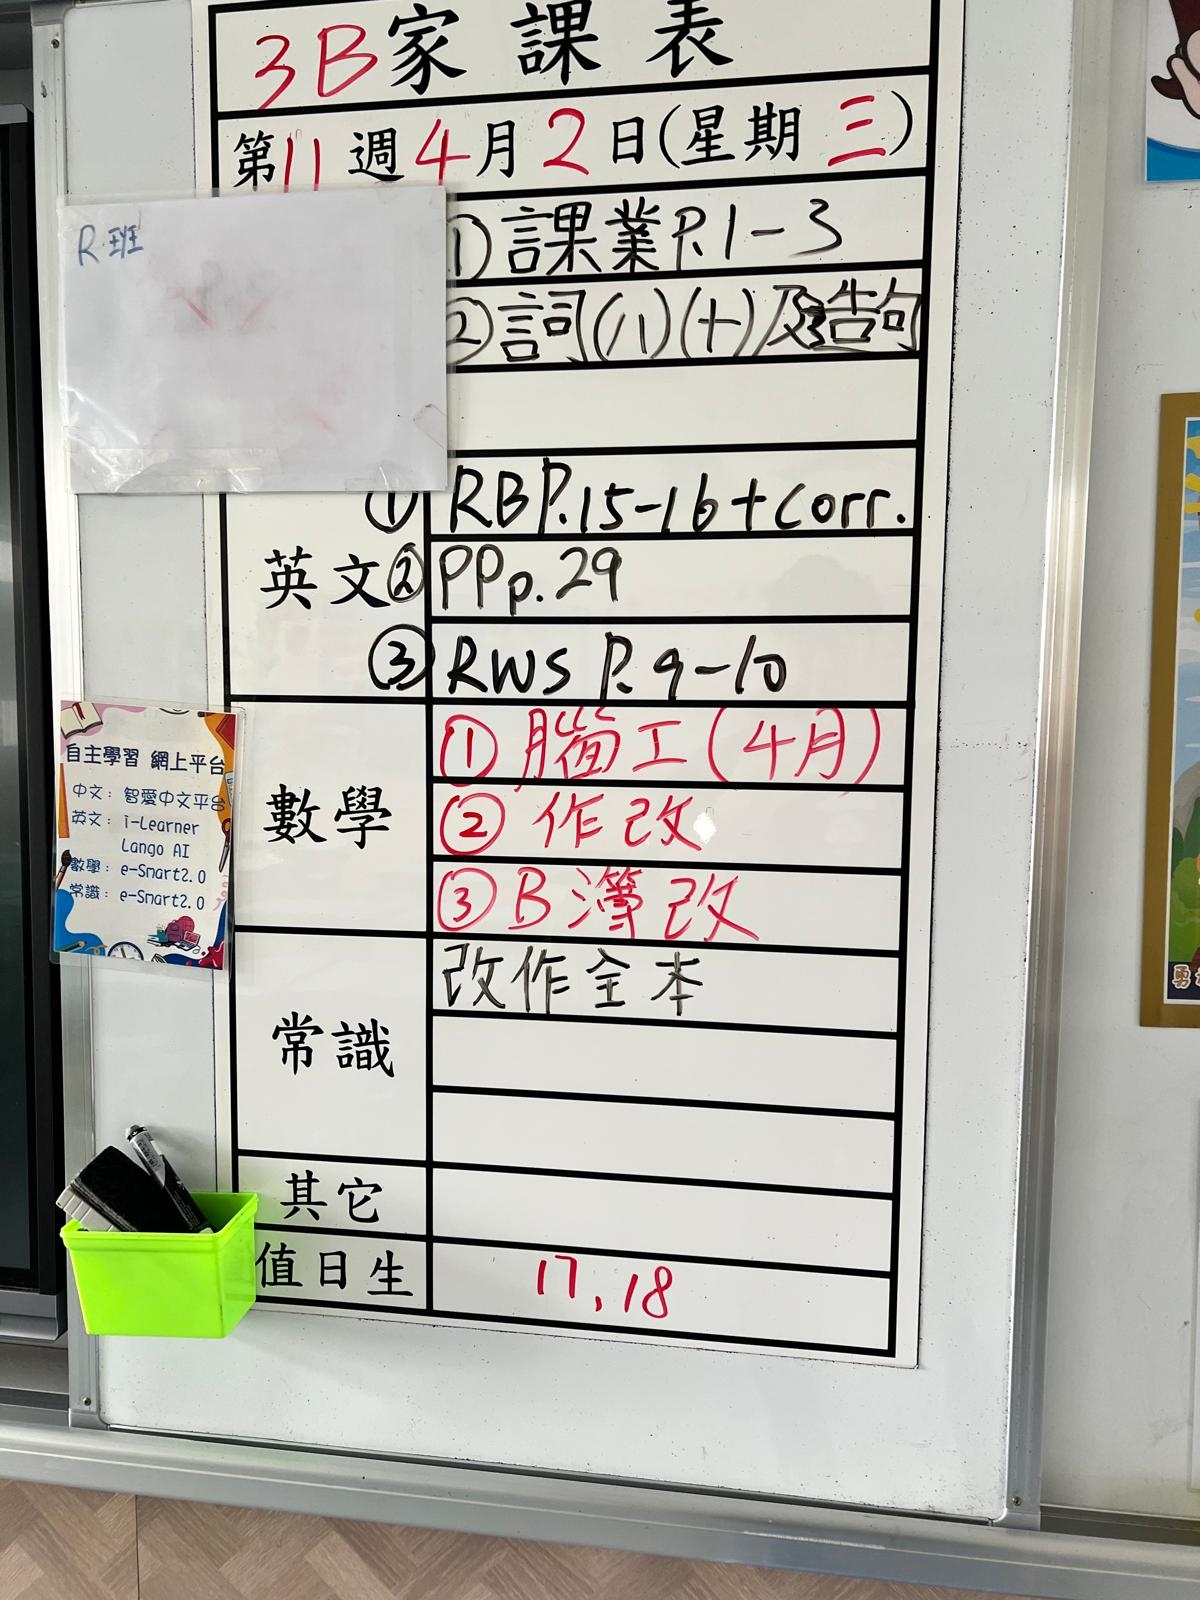 3B家課表
第11週4月2日(星期三)
R班
①課業P.1-3
②詞(八)(十)及告句
英文
①RB P.15-16+corr.
②PP p.29
③RWS P.9-10
數學
①腦工(4月)
②作改
③B簿改
常識
改作全本
其它
值日生
17,18
自主學習 網上平台
中文：智愛中文平台
英文：i-Learner
Lango AI
數學：e-Smart2.0
常識：e-Smart2.0
勇